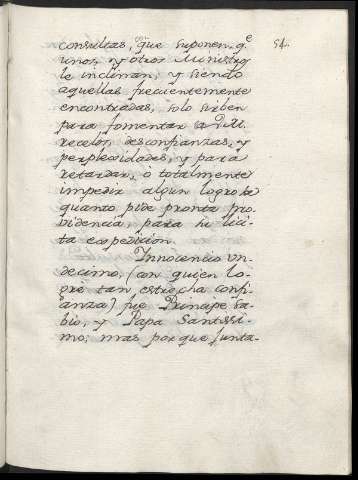 consultas, que suponen q.e 54.
unos, y otros Ministros
le inclinan; y siendo
aquellas frecuentemente
encontradas, solo sirben
para fomentar a V.M.
recelos, desconfianzas, y
perplexidades, y para
retardar, ò totalmente
impedir algun logro de
quanto pide pronta pro-
bidencia, para su lici-
ta expedicion.
Innocencio un-
decimo, (con quien lo-
gre tan estrecha confi-
anza) fue Principe sa-
bio, y Papa Santissi-
mo; mas porque junta-